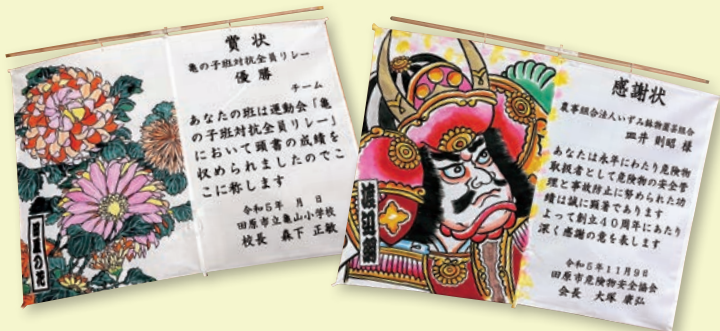 賞状
亀の子班対抗全員リレー
優勝
チーム
あなたの班は運動会「亀
の子班対抗全員リレー」
において頭書の成績を
収められましたのでこ
こに称します
令和5年 月 日
田原市立亀山小学校
校長 森下 正敏
感謝状
農事組合法人いずみ鉢物園芸組合
皿井 則昭 様
あなたは永年にわたり危険物
取扱者として危険物の安全管
理と事故防止に努められた功
績は誠に顕著であります
よって創立40周年にあたり
深く感謝の意を表します
令和5年11月9日
田原市危険物安全協会
会長 大塚 康弘
渡辺綱